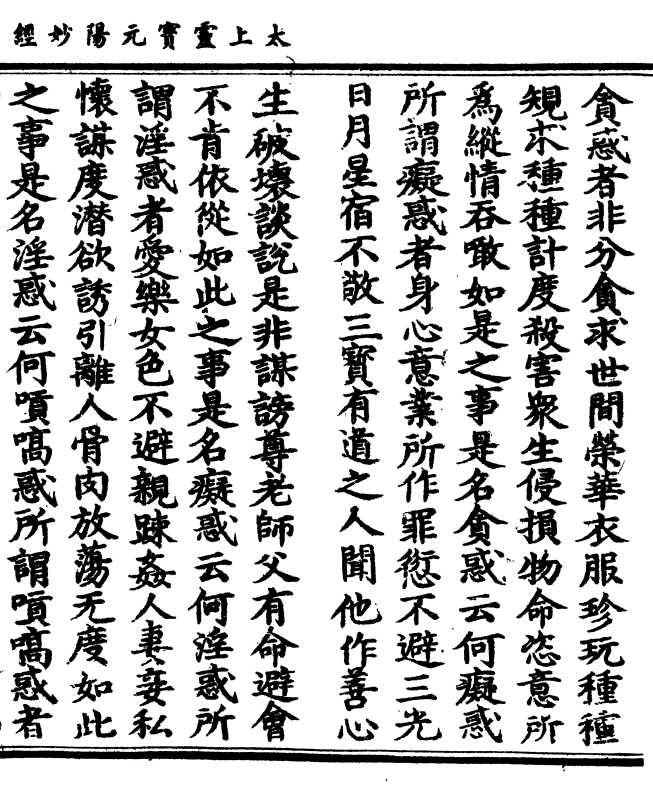 太上靈寶元陽妙經
貪惑者非分貪求世間榮華衣服珍玩種種
規求種種計度殺害衆生侵損物命恣意所
爲縱情吞噉如是之事是名貪惑云何癡惑
所謂癡惑者身心意業所作罪愆不避三光
日月星宿不敬三寳有道之人聞他作善心
生破壞談說是非謀謗尊老師父有命避會
不肯依從如此之事是名癡惑云何淫惑所
謂淫惑者愛樂女色不避親踈姦人妻妾私
懷謀度潛欲誘引離人骨肉放蕩无度如此
之事是名淫惑云何嗔嗃惑所謂嗔嗃惑者